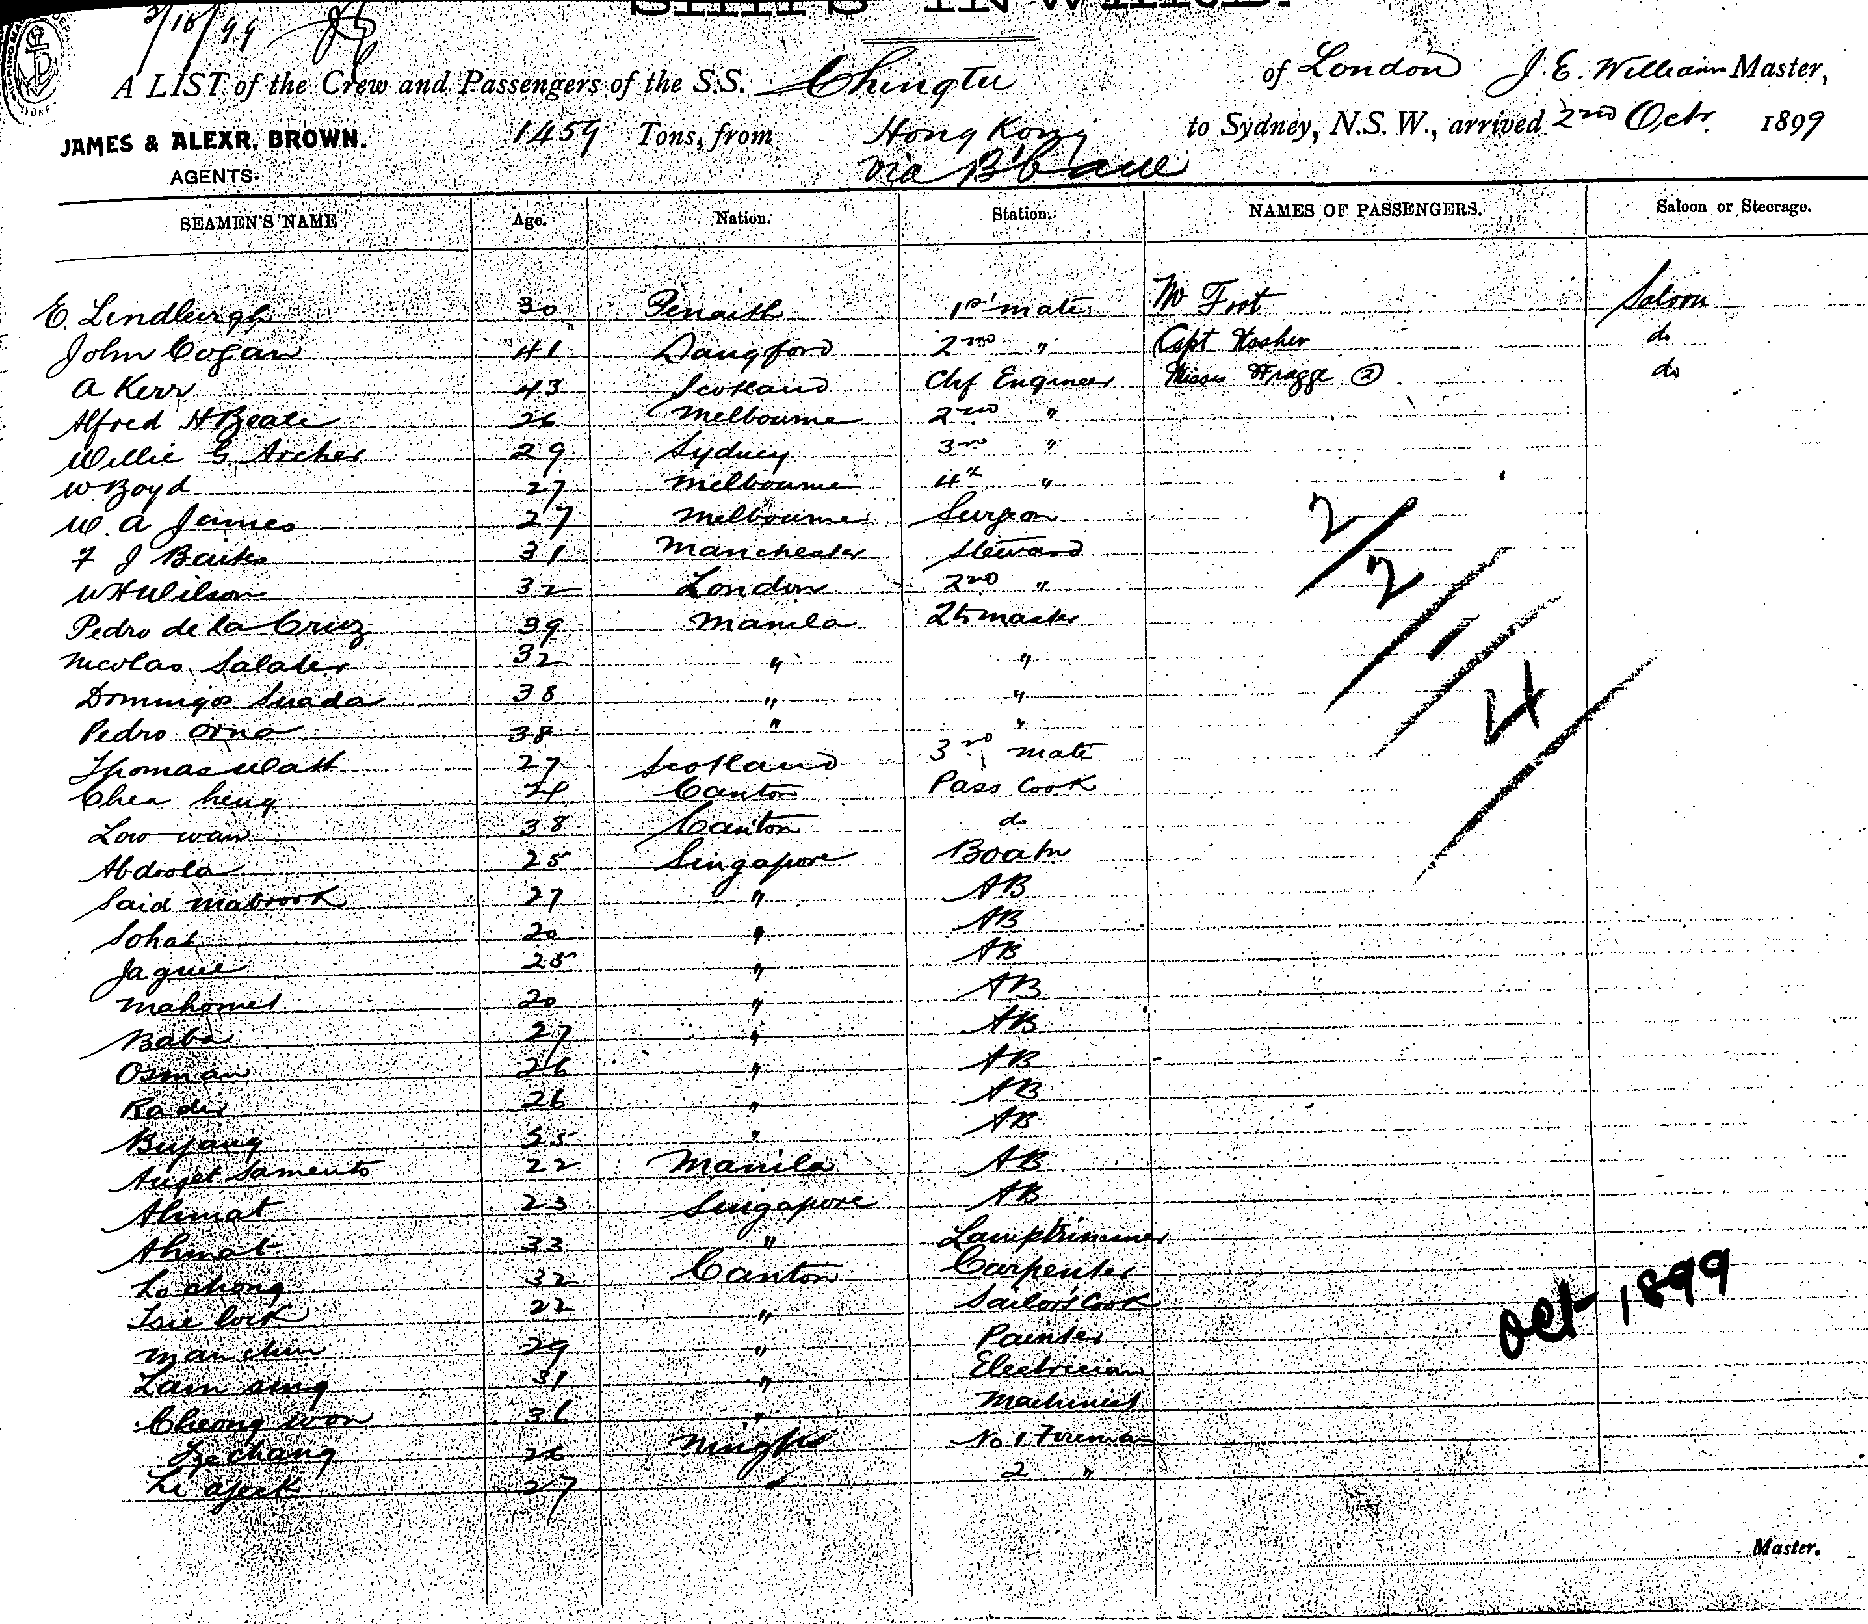 SHIPS INWARD.
3/10/99
A LIST of the Crew and Passengers of the S.S. Chingtu of London J. E. Williams Master,
JAMES & ALEXR. BROWN. 1459 Tons, from Hong Kong to Sydney, N.S.W., arrived 2nd Octr. 1899
AGENTS. via B'bane
SEAMEN'S NAME Age. Nation. Station. NAMES OF PASSENGERS. Saloon or Steerage.
E. Lindburgh 30 Penrith 1st mate Mr Foot Saloon
John Cogan 41 2nd " Capt Hosher do
A Kerr 43 Scotland Chf Engineer Misses Wragge 2 do
Alfred H Beale 26 Melbourne 2nd "
Willie G Archer 29 Sydney 3rd "
W Boyd 27 Melbourne 4th "
W. A James 27 Melbourne Surgeon
F J 31 Manchester Steward
W H Wilson 32 London 2nd "
Pedro de la Cruz 39 Manila Qtmaster
Nicolas Salater 32 " "
Domingo 38 " "
Pedro Orna 38 " "
Thomas Watt 27 Scotland 3rd mate
Chea heng Canton Pass Cook
Low wan 38 Canton do
Abdoola 25 Singapore Boatn
Said mabrook 27 " AB
Sohat 20 " AB
Jaguie 25 " AB
Mahomet 20 " AB
Baba 27 " AB
Osman 26 " AB
Kader 26 " AB
Bujang " AB
Samento 22 Manila AB
Ahmat 23 Singapore AB
Ahmat 33 " Lamptrimmer
Lo chong 32 Canton Carpenter
22 " Sailors Cook
Man chin 29 " Painter
Lam sing 31 " Electrician
Cheong won 36 " Machinist
chang 26 Ningpo No 1 Fireman
27 " 2 "
2/2/-/4
Oct 1899
Master.